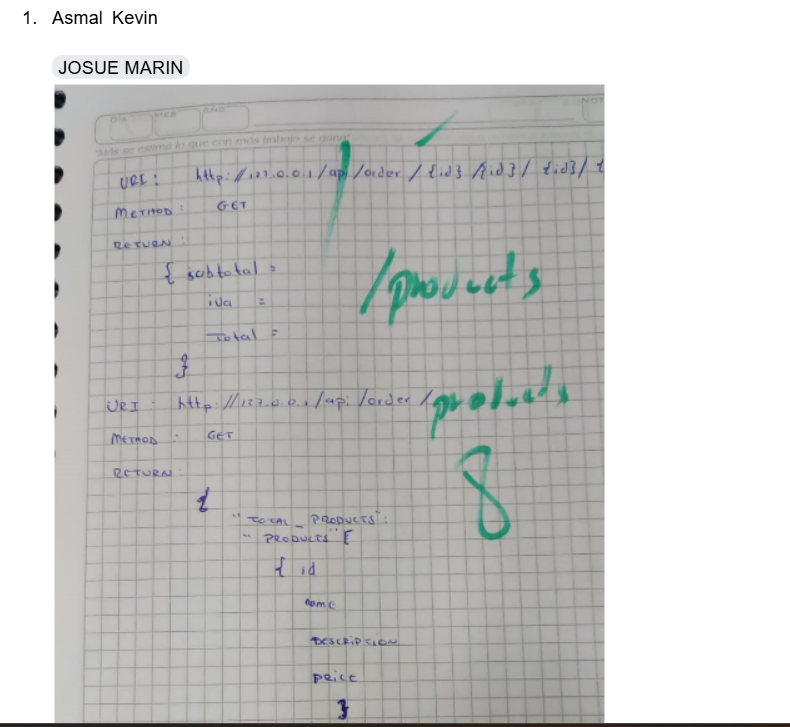 1. Asmal Kevin
JOSUE MARIN
DIA MES AÑO NOT
"Más se estima lo que con más trabajo se gana"
URI: http://127.0.0.1/api/order/{id}/{id}/{id}/
METHOD: GET
RETURN:
{ subtotal =
iva =
Total =
}
/products
URI: http://127.0.0.1/api/order/products
METHOD: GET
RETURN:
8
{
"TOTAL_PRODUCTS":
"PRODUCTS" [
{ id
name
DESCRIPTION
price
}